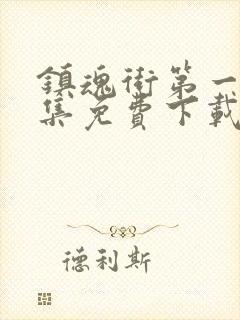 鎮魂街第一
集免費下載
德利斯